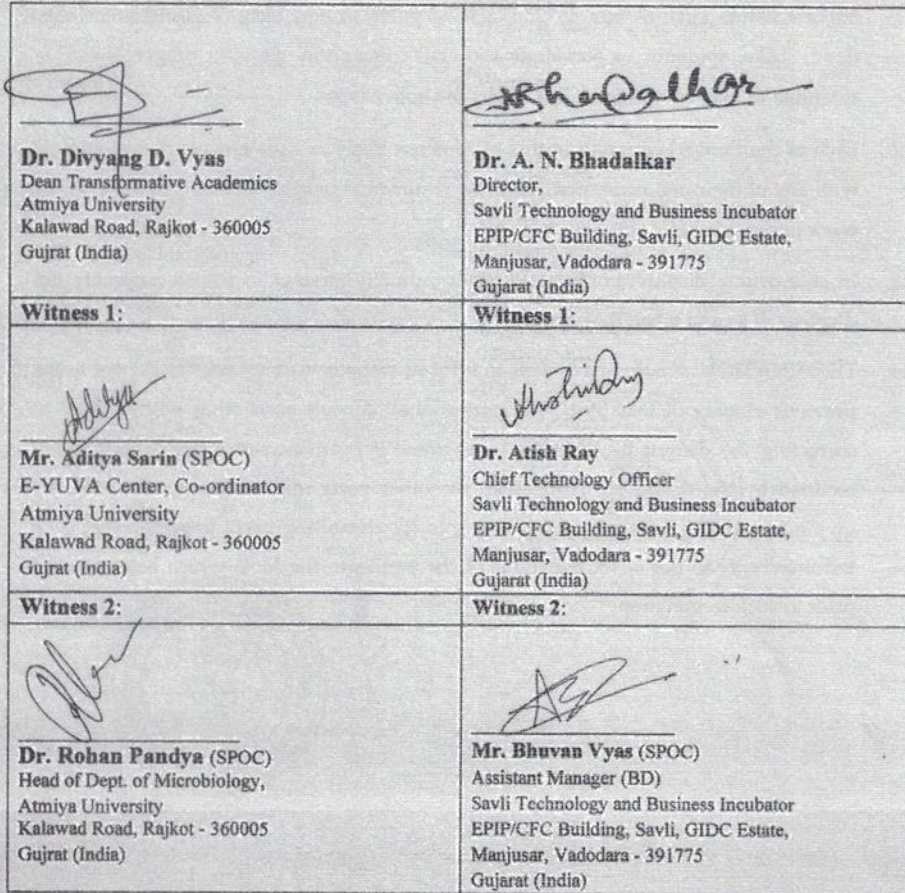 Dr. Divyang D. Vyas
Dean Transformative Academics
Atmiya University
Kalawad Road, Rajkot - 360005
Gujrat (India)
ARBhadalkar
Dr. A. N. Bhadalkar
Director,
Savli Technology and Business Incubator
EPIP/CFC Building, Savli, GIDC Estate,
Manjusar, Vadodara - 391775
Gujarat (India)
Witness 1:
Witness 1:
Aditya
Mr. Aditya Sarin (SPOC)
E-YUVA Center, Co-ordinator
Atmiya University
Kalawad Road, Rajkot - 360005
Gujrat (India)
Dr. Atish Ray
Chief Technology Officer
Savli Technology and Business Incubator
EPIP/CFC Building, Savli, GIDC Estate,
Manjusar, Vadodara - 391775
Gujarat (India)
Witness 2:
Witness 2:
Dr. Rohan Pandya (SPOC)
Head of Dept. of Microbiology,
Atmiya University
Kalawad Road, Rajkot - 360005
Gujrat (India)
Mr. Bhuvan Vyas (SPOC)
Assistant Manager (BD)
Savli Technology and Business Incubator
EPIP/CFC Building, Savli, GIDC Estate,
Manjusar, Vadodara - 391775
Gujarat (India)